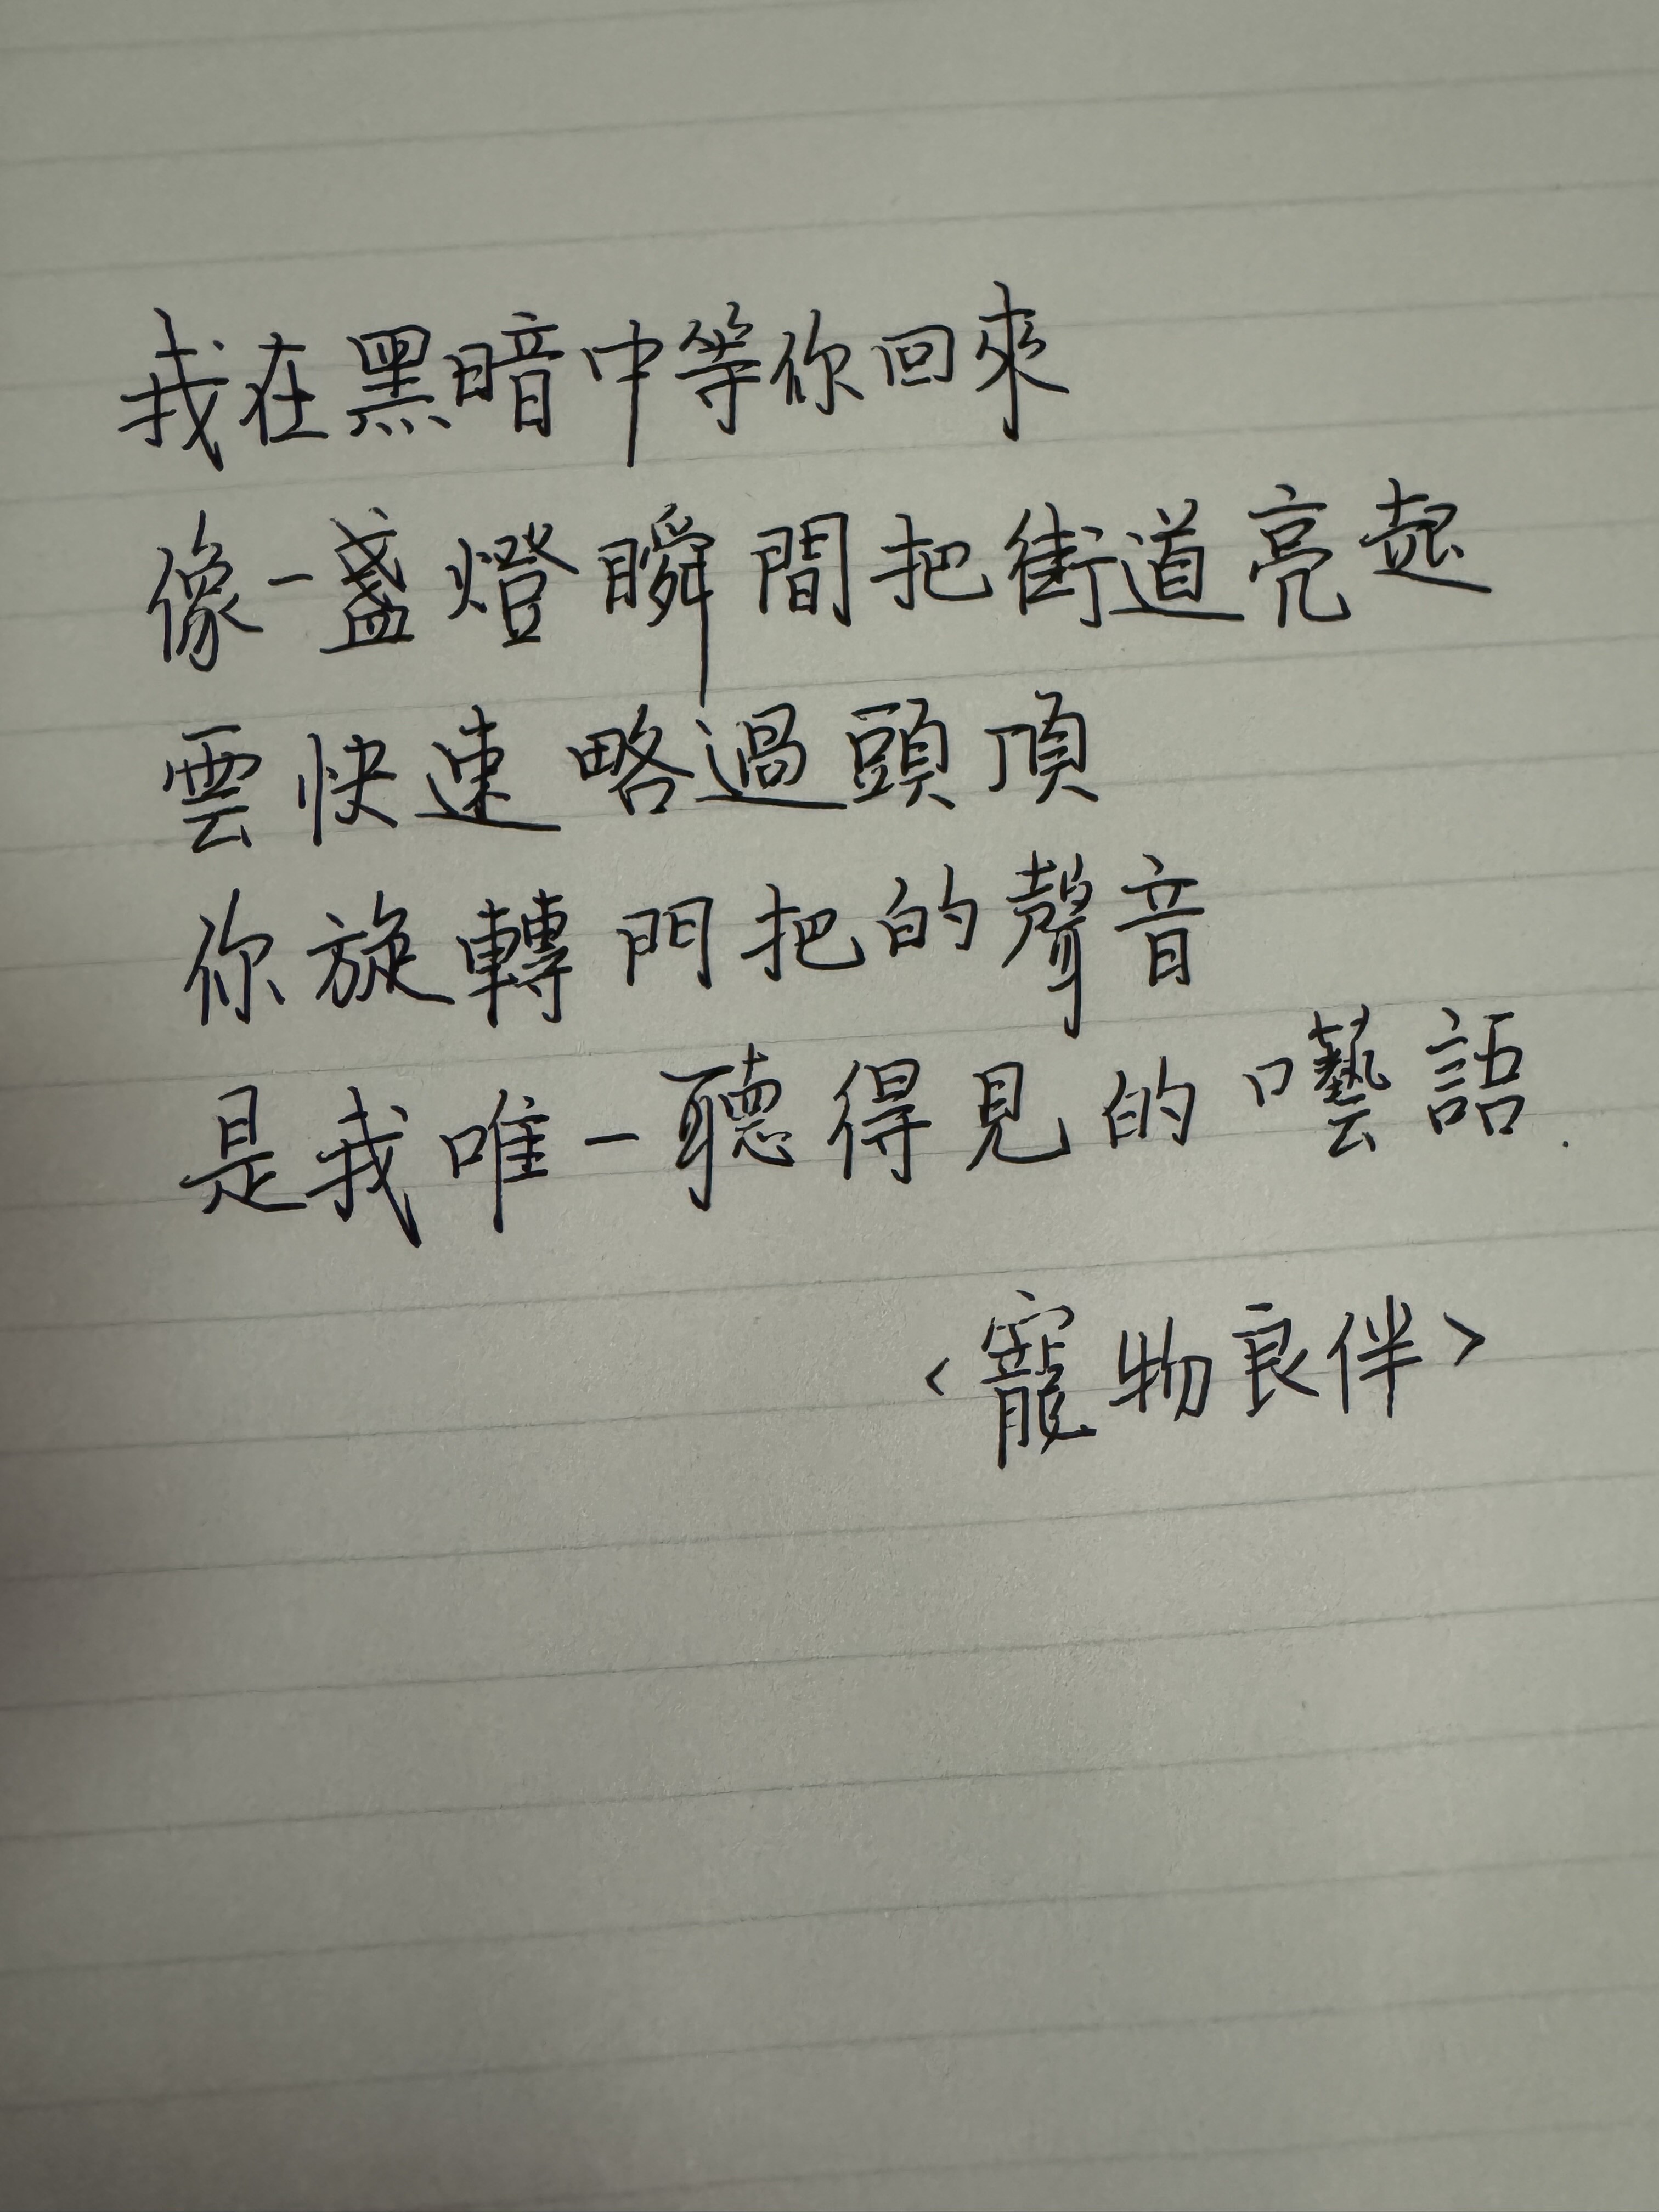 我在黑暗中等你回來
像一盞燈瞬間把街道亮起
雲快速略過頭頂
你旋轉門把的聲音
是我唯一聽得見的囈語.
<寵物良伴>